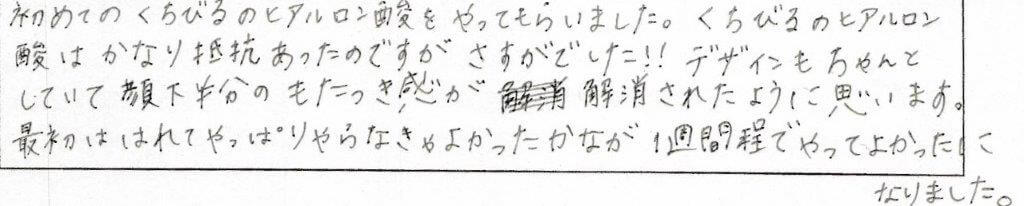 初めてのくちびるのヒアルロン酸をやってもらいました。くちびるのヒアルロン
酸はかなり抵抗あったのですがさすがでした!! デザインもちゃんと
していて顔下半分のもたつき感が解消されたように思います。
最初ははれてやっぱりやらなきゃよかったかなが1週間程でやってよかったに
なりました。